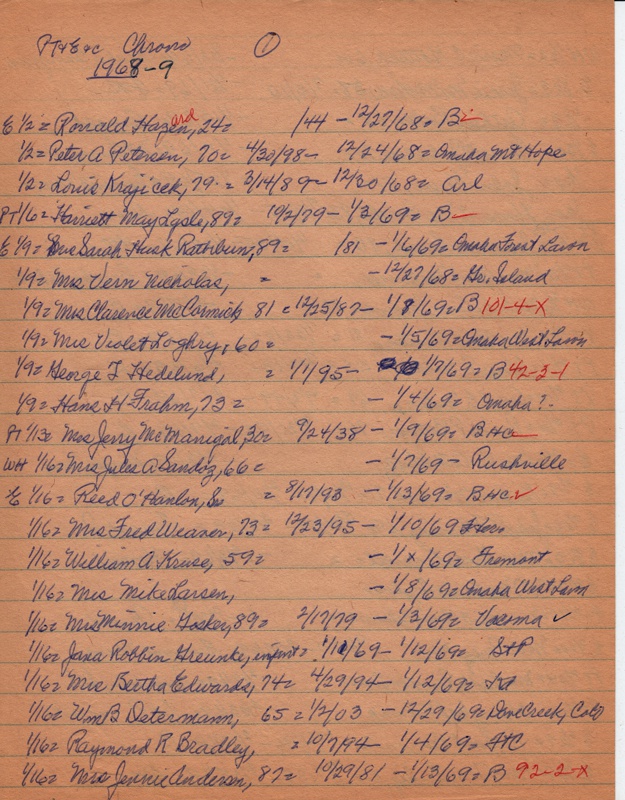 PT+E+C Chrono ①
1968-9
E 1/2= Ronald Hazen, ard 24= /44 - 12/27/68= B
1/2= Peter A Petersen, 70= 4/30/98- 12/24/68= Omaha Mt Hope
1/2= Louis Krajicek, 79= 3/14/89- 12/30/68= Arl
PT 1/6= Harriett May Lysle, 89= 10/2/79- 1/3/69= B
E 1/9= Mrs Sarah Husk Rathbun, 89= /81 - 1/6/69= Omaha Forest Lawn
1/9= Mrs Vern Nicholas, = - 12/27/68= Gr. Island
1/9= Mrs Clarence McCormick 81 = 12/25/87- 1/8/69= B 101-4-X
1/9= Mrs Violet Loghry, 60= - 1/5/69= Omaha West Lawn
1/9= George F Hedelund, = 1/1/95- 1/7/69= B 42-3-1
1/9= Hans H Frahm, 73= - 1/4/69= Omaha?-
PT 1/13= Mrs Jerry McManigal, 30= 9/24/38- 1/9/69= BHC
WH 1/16= Mrs Jules A Sandoz, 66= - 1/7/69- Rushville
E 1/16= Reed O'Hanlon, Sr = 8/17/93 - 1/13/69= BHC✓
1/16= Mrs Fred Weaver, 73= 12/23/95- 1/10/69
1/16= William A Kruse, 59= - 1/x/69= Fremont
1/16= Mrs Mike Larsen, - 1/8/69= Omaha West Lawn
1/16= Mrs Minnie Hosker, 89= 2/17/79 - 1/3/69= Vacoma ✓
1/16= Jana Robbin Greunke, infant= 1/11/69- 1/12/69= StP
1/16= Mrs Bertha Edwards, 74= 4/29/94- 1/12/69=
1/16= Wm B Determann, 65 = 1/2/03 - 12/29/69= Dove Creek, Colo
1/16= Raymond R Bradley, = 10/7/94- 1/4/69= HC
1/16= Mrs Jennie Andersen, 87= 10/29/81 - 1/13/69= B 92-2-X